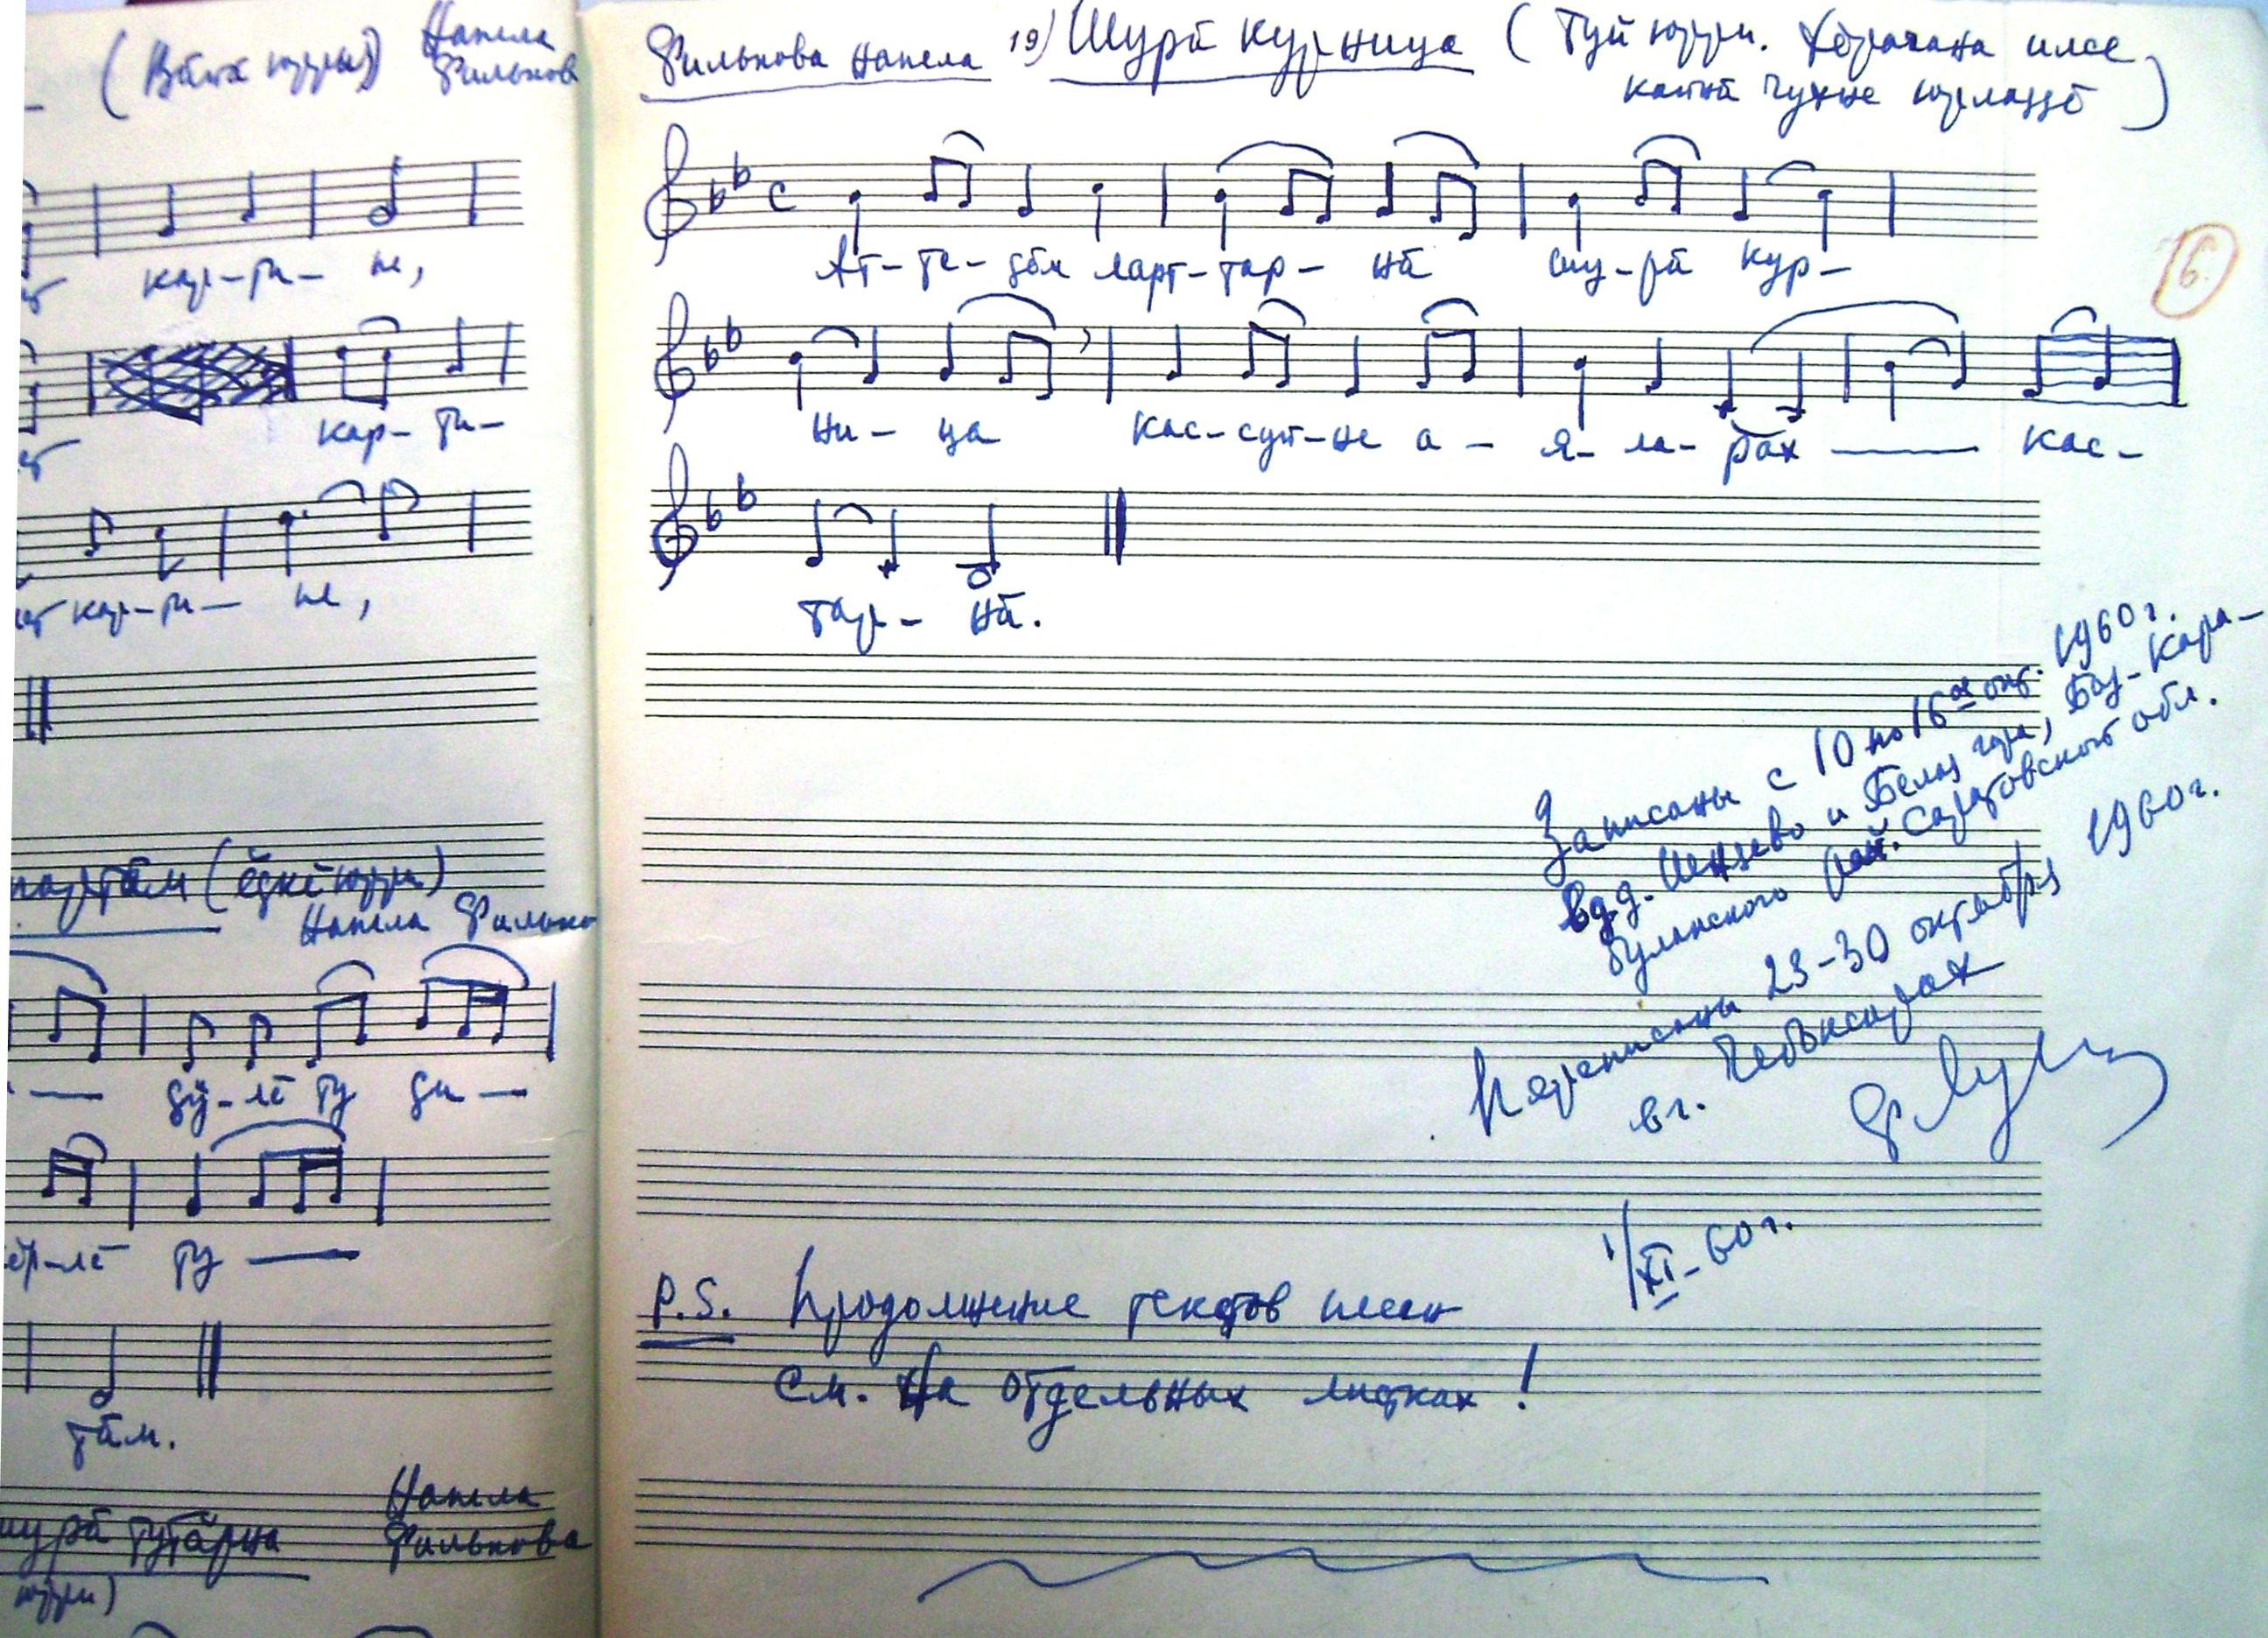 (Вӑйӑ юрри) Напела
Фильков
кар-ти- не,
кар- ти-
кар-ти- не,
(ӗҫкӗ юрри)
Напела Филько
ҫӳ-лӗ ту ҫи
ту
тӑм.
шурӑ тутӑрпа
Напела
Фильнова
юрри)
Фильнова напела 19) Шурӑ курница (Туй юрри. Хӗрачана илсе
кайнӑ чухне юрлаҫҫӗ)
6
Ат-те-ҫӗм ларт-тар- нӑ шу-рӑ кур-
ни- ца кас-сут-не а- я- ла- рах кас-
тар- нӑ.
Записаны с 10 по 16ое окт. 1960г.
в дд. Шенцево и Белая гора, Баз-Кара-
булакского рай. Саратовской обл.
Переписаны 23-30 октября 1960г.
в г. Чебоксарах
1/XI-60г.
P.S. Продолжение текстов песен
см. на отдельных листках!